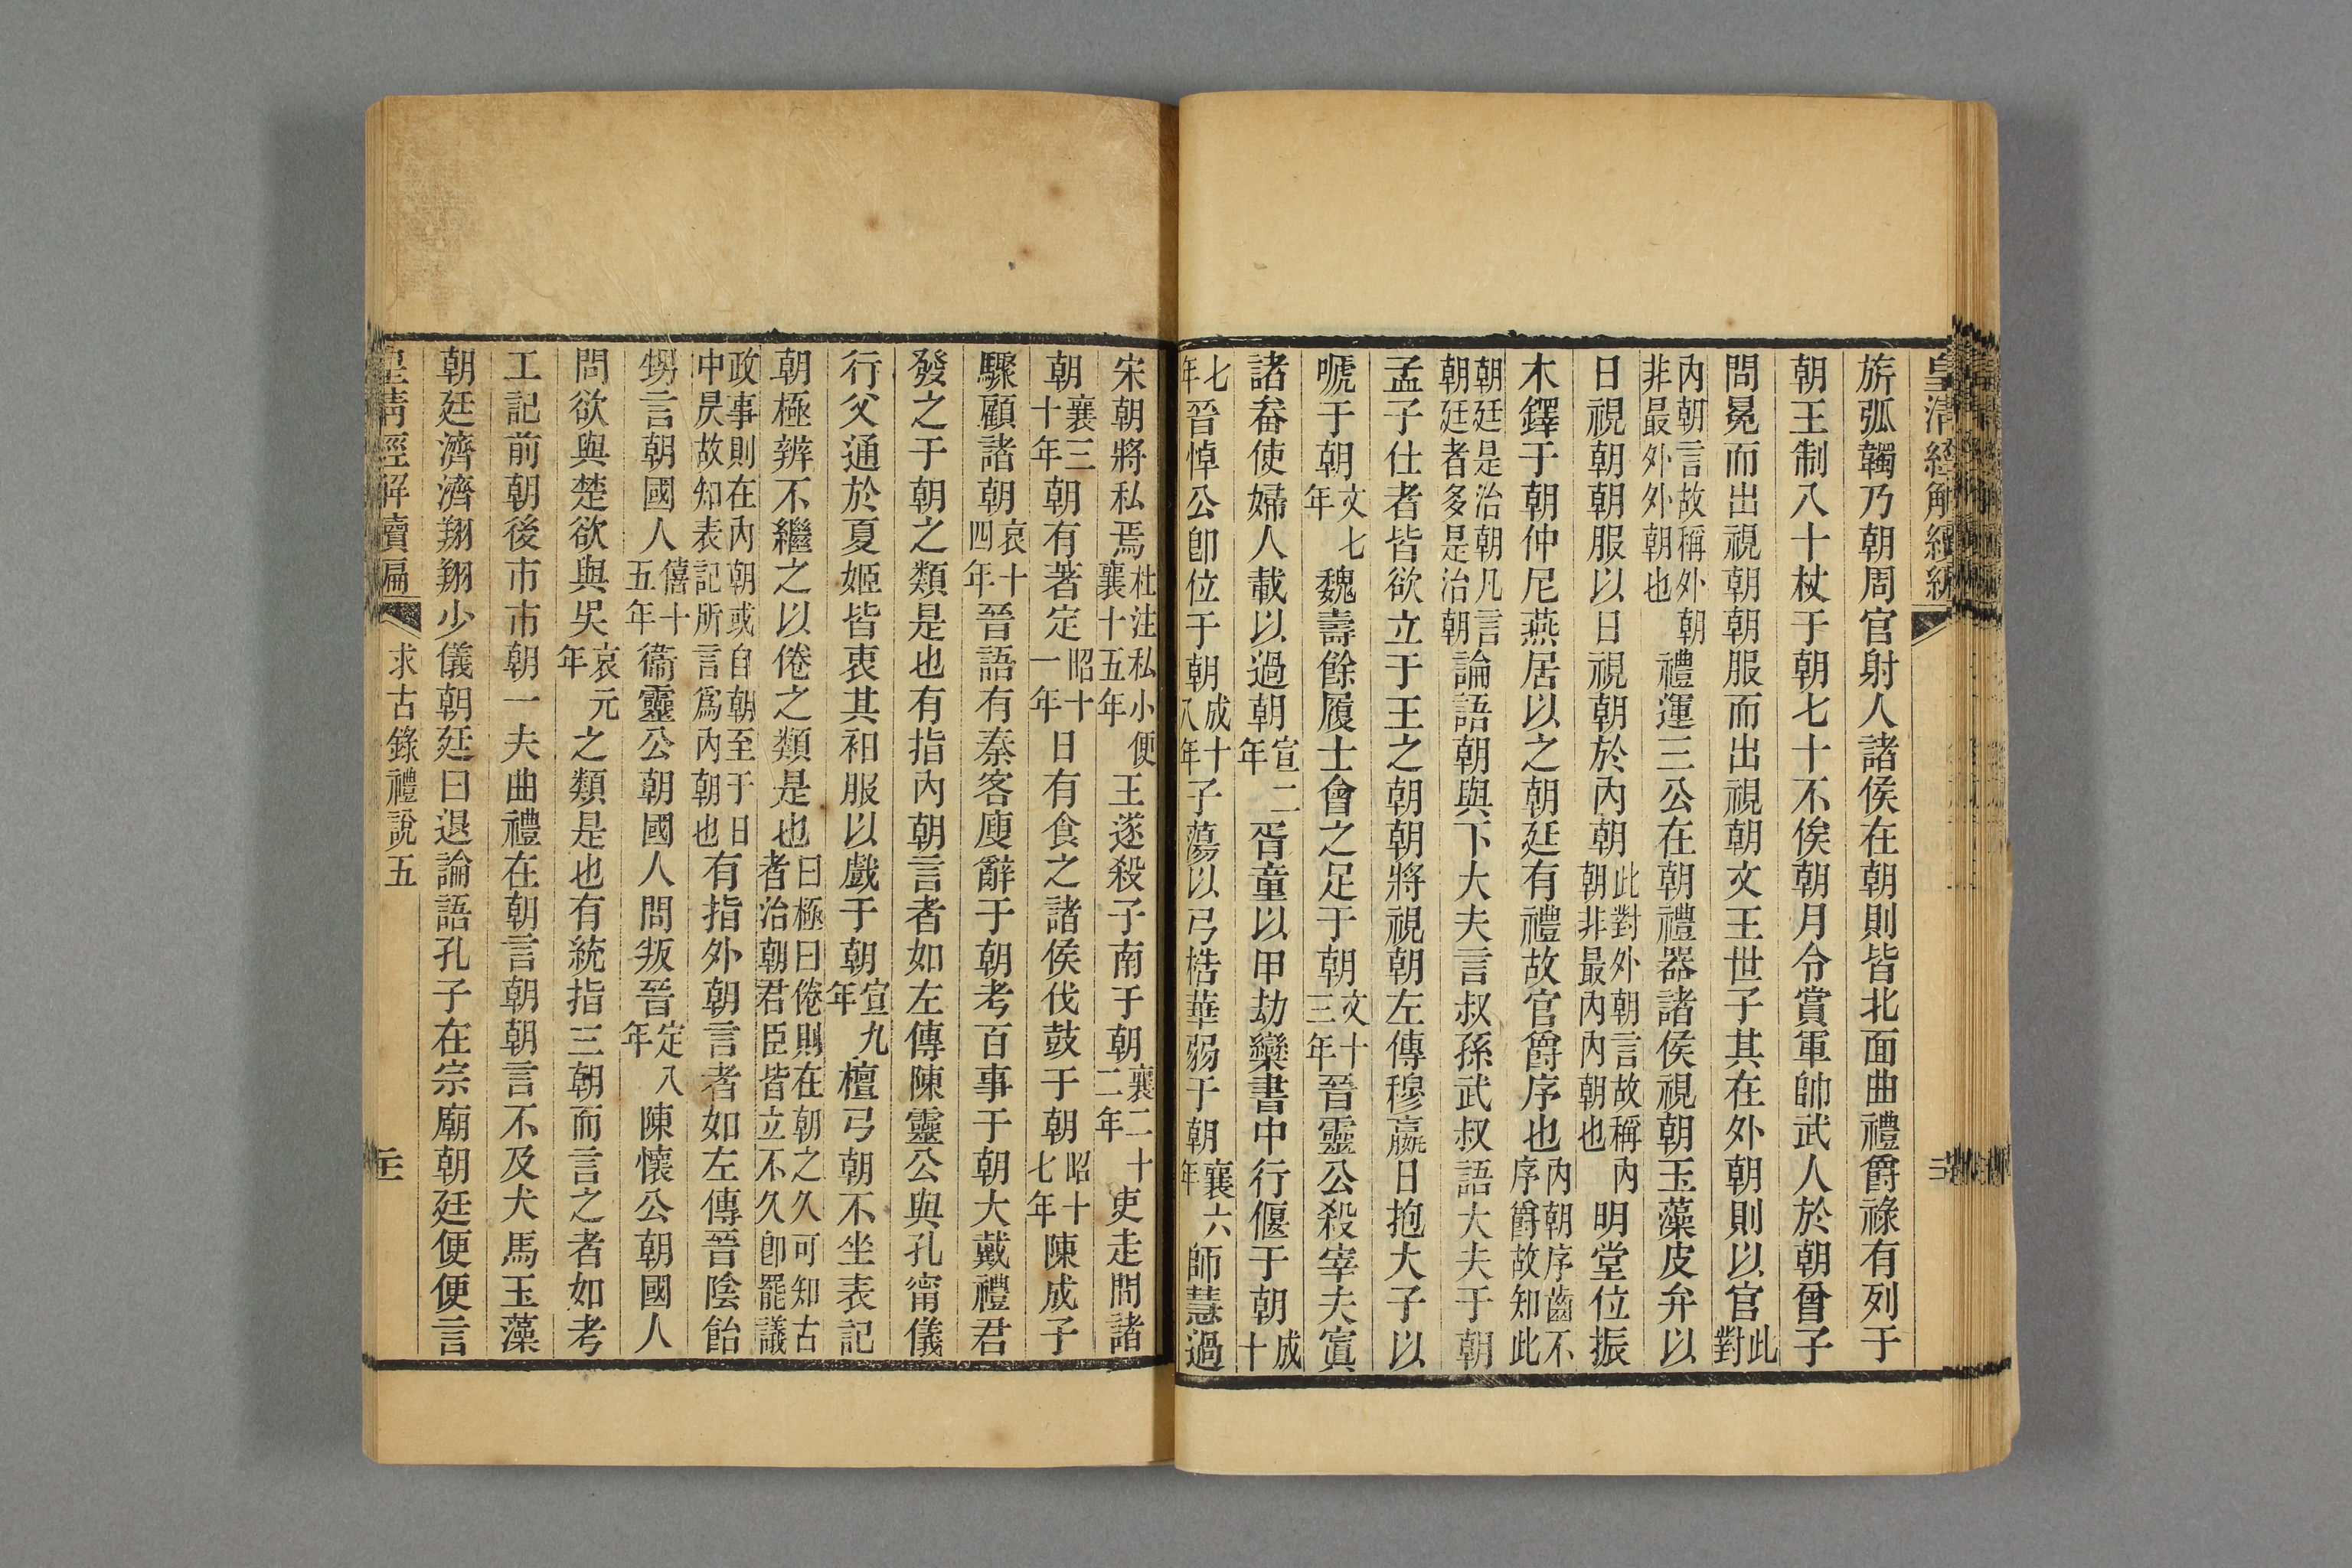 皇清經解續編
旂弧韣乃朝周官射人諸侯在朝則皆北面曲禮爵祿有列于
朝王制八十杖于朝七十不俟朝月令賞軍帥武人於朝曾子
問冕而出視朝朝服而出視朝文王世子其在外朝則以官此對
內朝言故稱外朝非最外外朝也禮運三公在朝禮器諸侯視朝玉藻皮弁以
日視朝朝服以日視朝於內朝此對外朝言故稱內朝非最內內朝也明堂位振
木鐸于朝仲尼燕居以之朝廷有禮故官爵序也內朝序齒不序爵故知此
朝廷是治朝凡言朝廷者多是治朝論語朝與下大夫言叔孫武叔語大夫于朝
孟子仕者皆欲立于王之朝朝將視朝左傳穆嬴日抱大子以
嗁于朝文七年魏壽餘履士會之足于朝文十三年晉靈公殺宰夫寘
諸畚使婦人載以過朝宣二年胥童以甲劫欒書中行偃于朝成十
七年晉悼公卽位于朝成十八年子蕩以弓梏華弱于朝襄六年師慧過
宋朝將私焉杜注私小便襄十五年王遂殺子南于朝襄二十二年吏走問諸
朝襄三十年朝有著定昭十一年日有食之諸侯伐鼓于朝昭十七年陳成子
驟顧諸朝哀十四年晉語有秦客廋辭于朝考百事于朝大戴禮君
發之于朝之類是也有指內朝言者如左傳陳靈公與孔甯儀
行父通於夏姬皆衷其衵服以戲于朝宣九年檀弓朝不坐表記
朝極辨不繼之以倦之類是也曰極曰倦則在朝之久可知古者治朝君臣皆立不久卽罷議
政事則在內朝或自朝至于日中昃故知表記所言爲內朝也有指外朝言者如左傳晉陰飴
甥言朝國人僖十五年衞靈公朝國人問叛晉定八年陳懷公朝國人
問欲與楚欲與吳哀元年之類是也有統指三朝而言之者如考
工記前朝後市市朝一夫曲禮在朝言朝朝言不及犬馬玉藻
朝廷濟濟翔翔少儀朝廷曰退論語孔子在宗廟朝廷便便言
皇清經解續編 求古錄禮說五